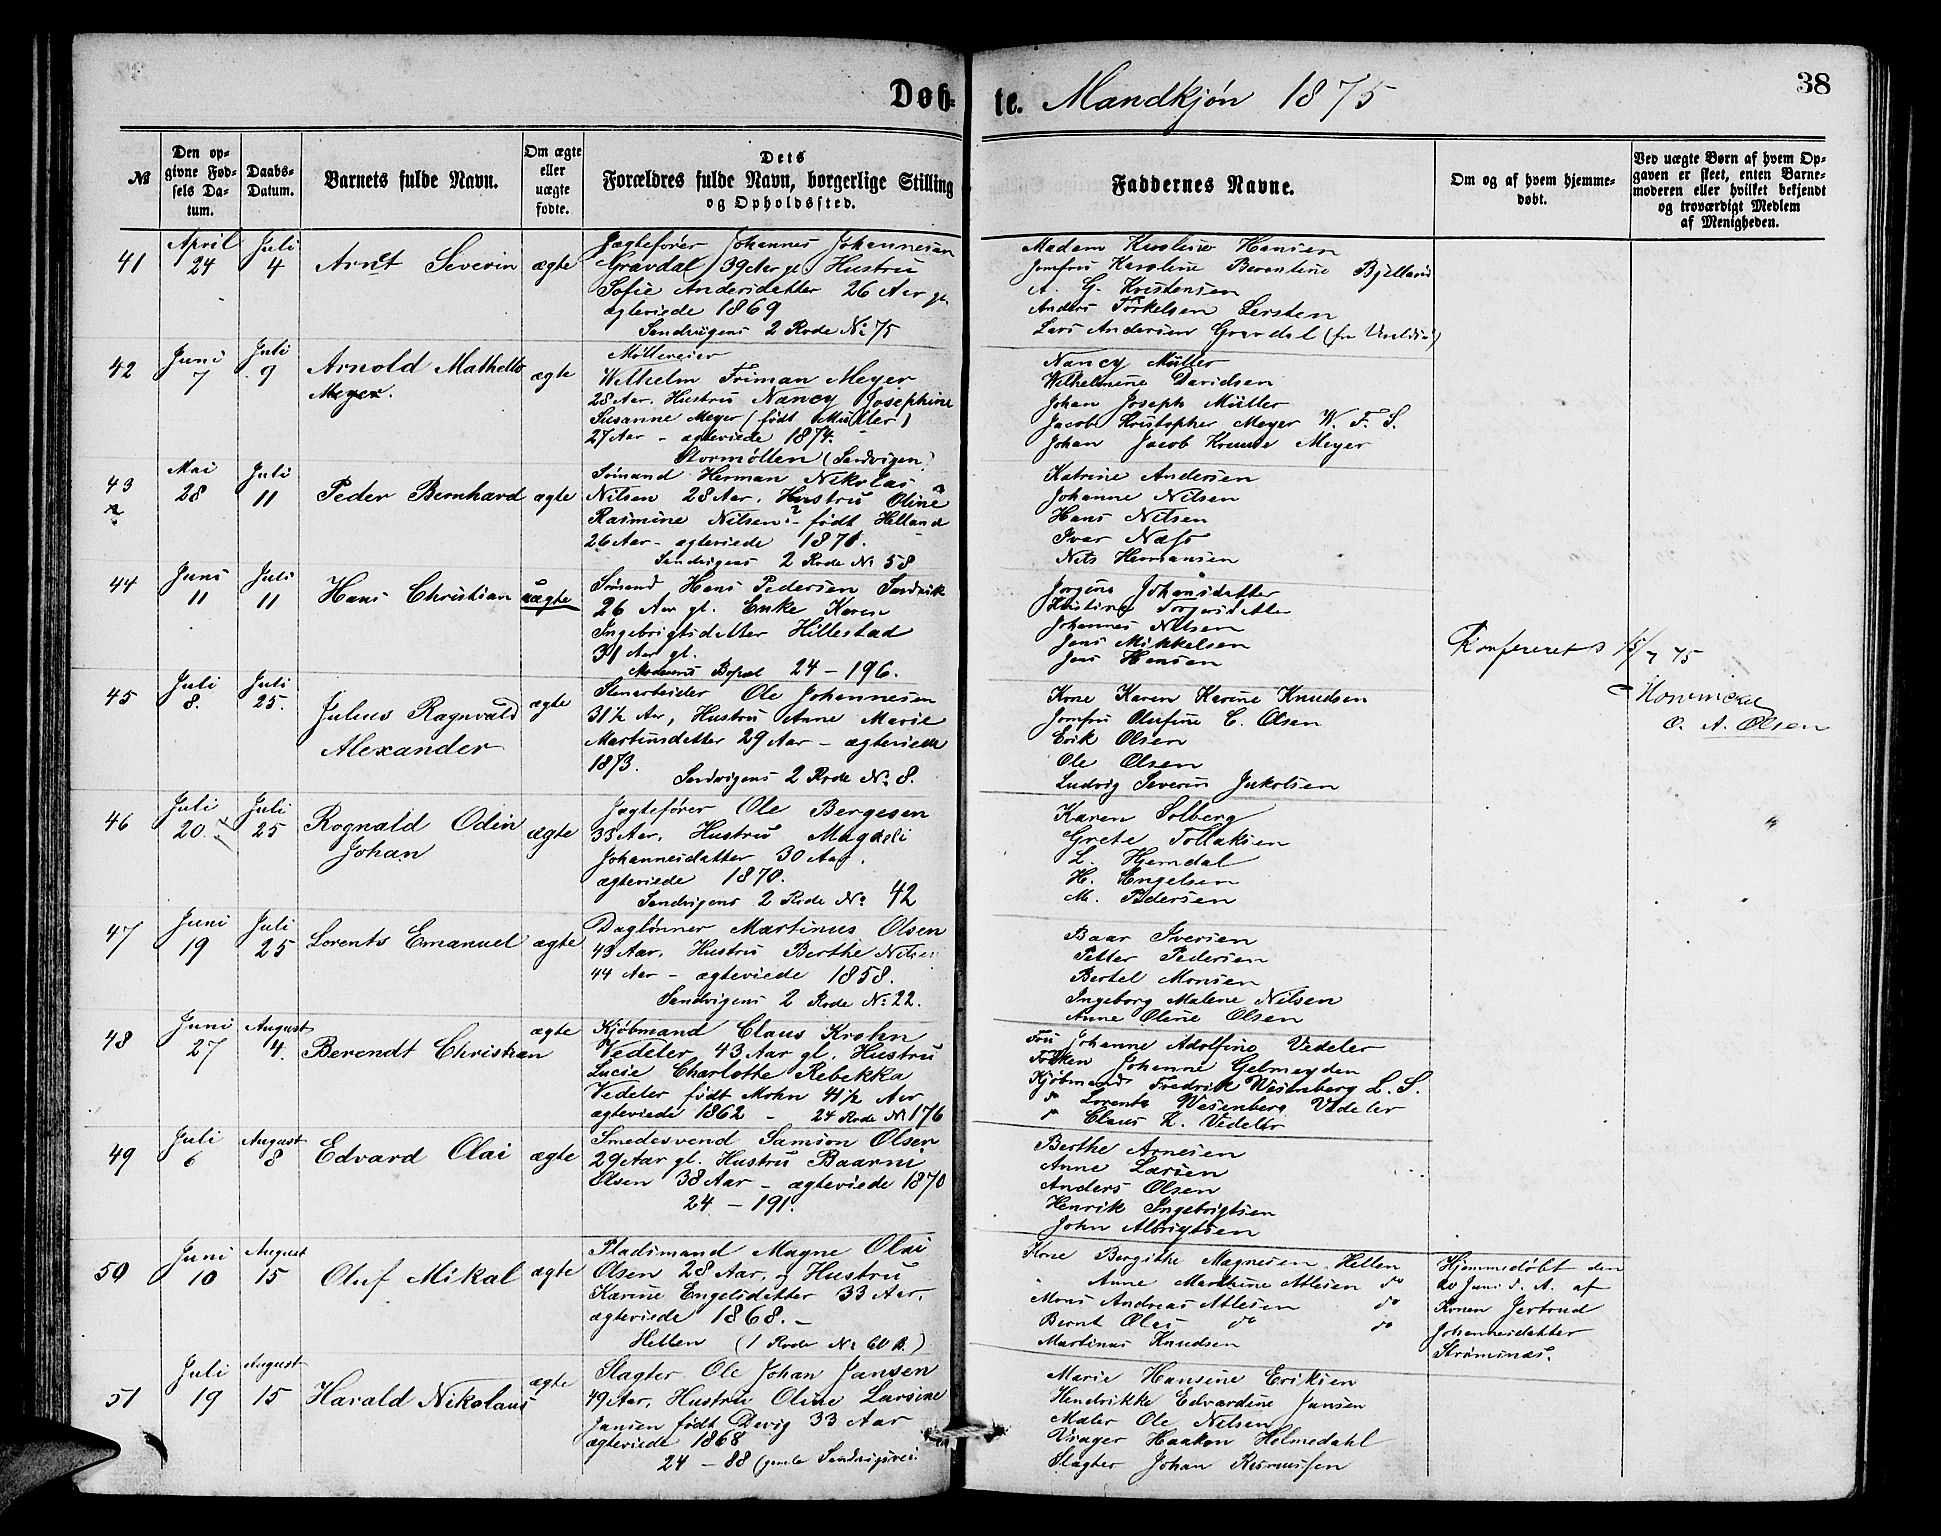 Døb-
te. Mandkjøn 1875
38
№
Den op-
givne Fød-
sels Da-
tum.
Daabs-
Datum.
Barnets fulde Navn.
Om ægte
eller
uægte
fødte.
Dets
Forældres fulde Navn, borgerlige Stilling
og Opholdssted.
Faddernes Navne.
Om og af hvem hjemme-
døbt.
Ved uægte Børn af hvem Op-
gaven er skeet, enten Barne-
moderen eller hvilket bekjendt
og troværdigt Medlem
af Menigheden.
41
April
24
Juli
4
Arnt Severin
ægte
Jægtefører Johannes Johannesen
Gravdal, 39 Aar gl. Hustru
Sofie Andersdatter 26 Aar gl.
ægteviede 1869
Sandvigens 2 Rode No 75
Madam Karoline Hansen
Jomfru Karoline Berentine Bjelland
A. G. Kristensen
Anders Torkelsen Lersten
Lars Andersen Gravdal
42
Juni
7
Juli
9
Arnold Mathello
Meyer.
ægte
Mølleeier
Wilhelm Friman Meyer
28 Aar. Hustru Nancy Josephine
Susanne Meyer (født Müller)
27 Aar - ægteviede 1874.
Stormøllen (Sandvigen)
Nancy Müller
Wilhelmine Davidsen
Johan Joseph Müller
Jacob Kristopher Meyer W. F. S.
Johan Jacob Meyer
43
Mai
28
Juli
11
Peder Bernhard
ægte
Sømand Herman Nikolas
Nilsen 28 Aar. Hustru Oline
Rasmine Nilsen - født Helland
26 Aar - ægteviede 1870.
Sandvigens 2 Rode No 58
Katrine Andersen
Johanne Nilsen
Hans Nilsen
Ivar Næss
Nils Hermansen
44
Juni
11
Juli
11
Hans Christian
uægte
Sømand Hans Pedersen Sandvik
26 Aar gl. Enke Karen
Ingebrigtsdatter Hillestad
31 Aar gl.
Moderens Bopæl 24 - 196.
Jorgine Johansdatter
Kristine Torgersdatter
Johannes Nilsen
Jens Mikkelsen
Jens Hansen
Konfereret 15/7 75
O. A. Olsen
45
Juli
8.
Juli
25.
Julius Ragnvald
Alexander
ægte
Stenarbeider Ole Johannesen
31½ Aar, Hustru Anne Marie
Martinsdatter 29 Aar - ægteviede
1873.
Sandvigens 2 Rode No 8.
Kone Karen Karine Knudsen
Jomfru Olufine C. Olsen
Erik Olsen
Ole Olsen
Ludvig Severin Jakobsen
46
Juli
20.
Juli
25
Rognald Odin
Johan
ægte
Jægtefører Ole Bergesen
33 Aar. Hustru Magdeli
Johannesdatter 30 Aar.
ægteviede 1870.
Sandvigens 2 Rode No 42
Karen Solberg
Grete Tollaksen
L. Hjemdal
H. Engelsen
M. Pedersen
47
Juni
19
Juli
25
Lorents Emanuel
ægte
Dagløner Martinus Olsen
43 Aar. Hustru Berthe Nilsen
44 Aar - ægteviede 1858.
Sandvigens 2 Rode No 22.
Baar Iversen
Petter Pedersen
Bertel Monsen
Ingeborg Malene Nilsen
Anne Oline Olsen
48
Juni
27
August
4.
Berendt Christian
ægte
Kjøbmand Claus Krohn
Vedeler 43 Aar gl. Hustru
Lucie Charlotte Rebekka
Vedeler født Mohn 41½ Aar
ægteviede 1862 - 24 Rode No 176
Fru Johanne Adolfine Vedeler
Frøken Johanne Gelmeyden
Kjøbmand Fredrik Wesenberg L. S.
do Lorents Wesenberg Vedeler
do Claus K. Vedeler
49
Juli
6
August
8
Edvard Olai
ægte
Smedesvend Samson Olsen
29 Aar gl. Hustru Baarni
Olsen 38 Aar - ægteviede 1870
24 - 191.
Berthe Arnesen
Anne Larsen
Anders Olsen
Henrik Ingebrigtsen
John Albrigtsen
50
Juni
10
August
15
Oluf Mikal
ægte
Pladsmand Magne Olai
Olsen 28 Aar, og Hustru
Karine Engelsdatter 33 Aar.
ægteviede 1868. -
Hellen (1 Rode No 60 B.)
Kone Bergithe Magnesen Hellen
Anne Marthine Atlesen do
Mons Andreas Atlesen do
Bernt Olai do do
Martinus Knudsen
Hjemmedøbt den
20 Juni d. A. af
Konen Jertrud
Johannesdatter
Strømsnæs.
51
Juli
19
August
15
Harald Nikolaus
ægte
Slagter Ole Johan Jansen
49 Aar, Hustru Oline Larsine
Jansen født Devig 33 Aar
ægteviede 1868
24 - 88 (gamle Sandvigsvei)
Marie Hansine Eriksen
Hendrikke Edvardine Jansen
Maler Ole Nilsen
Vrager Haakon Holmedahl
Slagter Johan Rasmussen